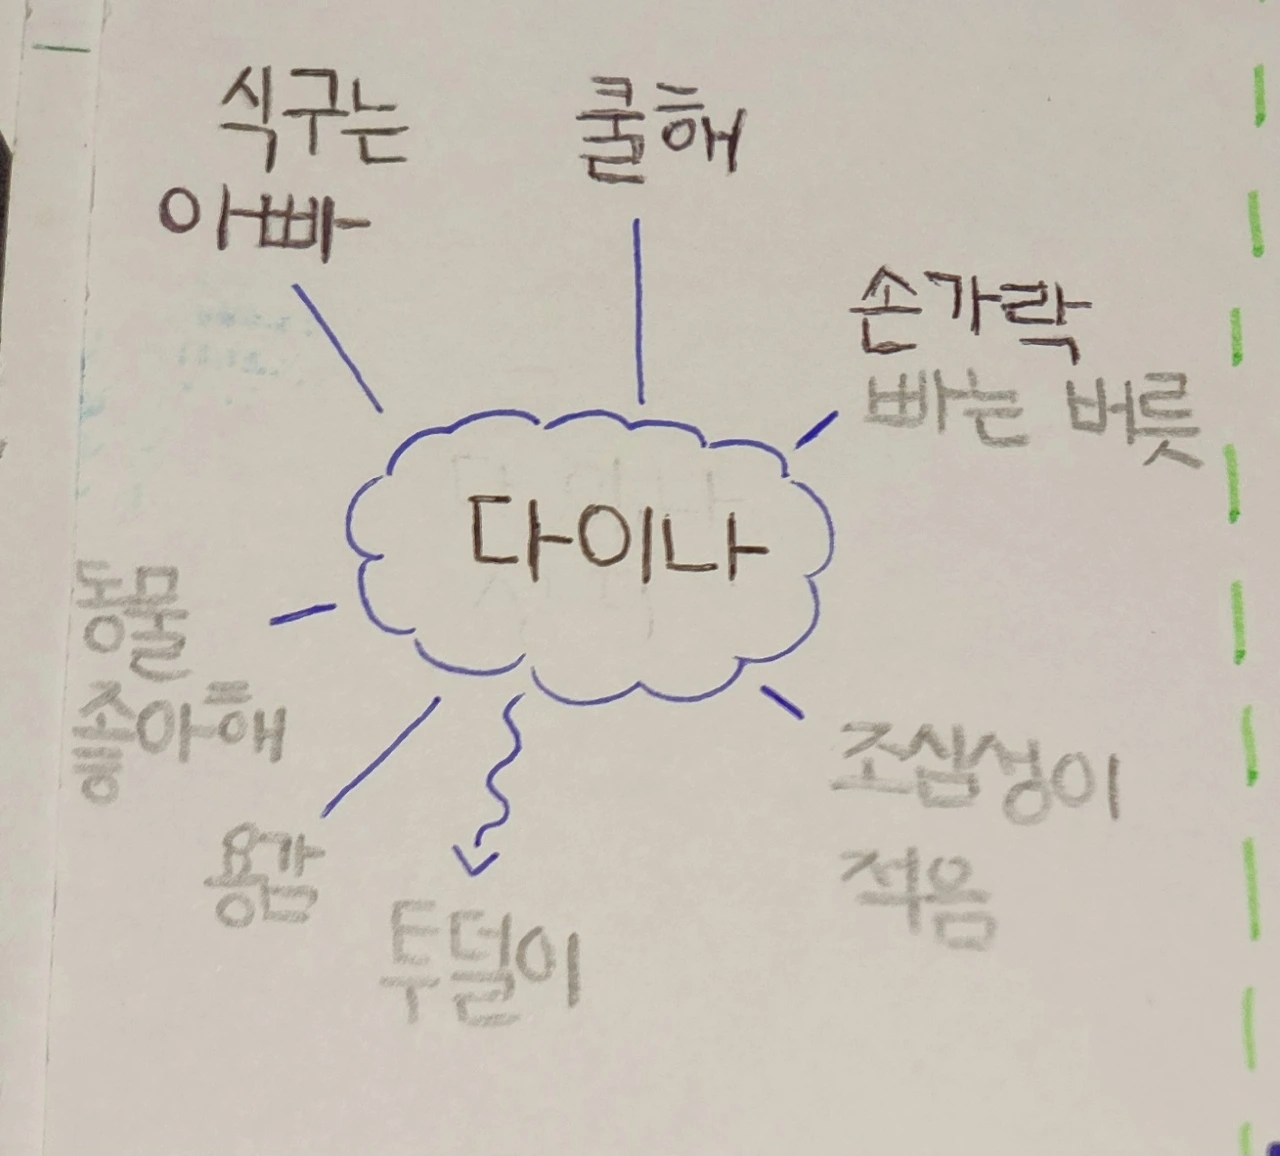 식구는
아빠
쿨해
손가락
빠는 버릇
다이나
동물
좋아해
용감
투덜이
조심성이
적음